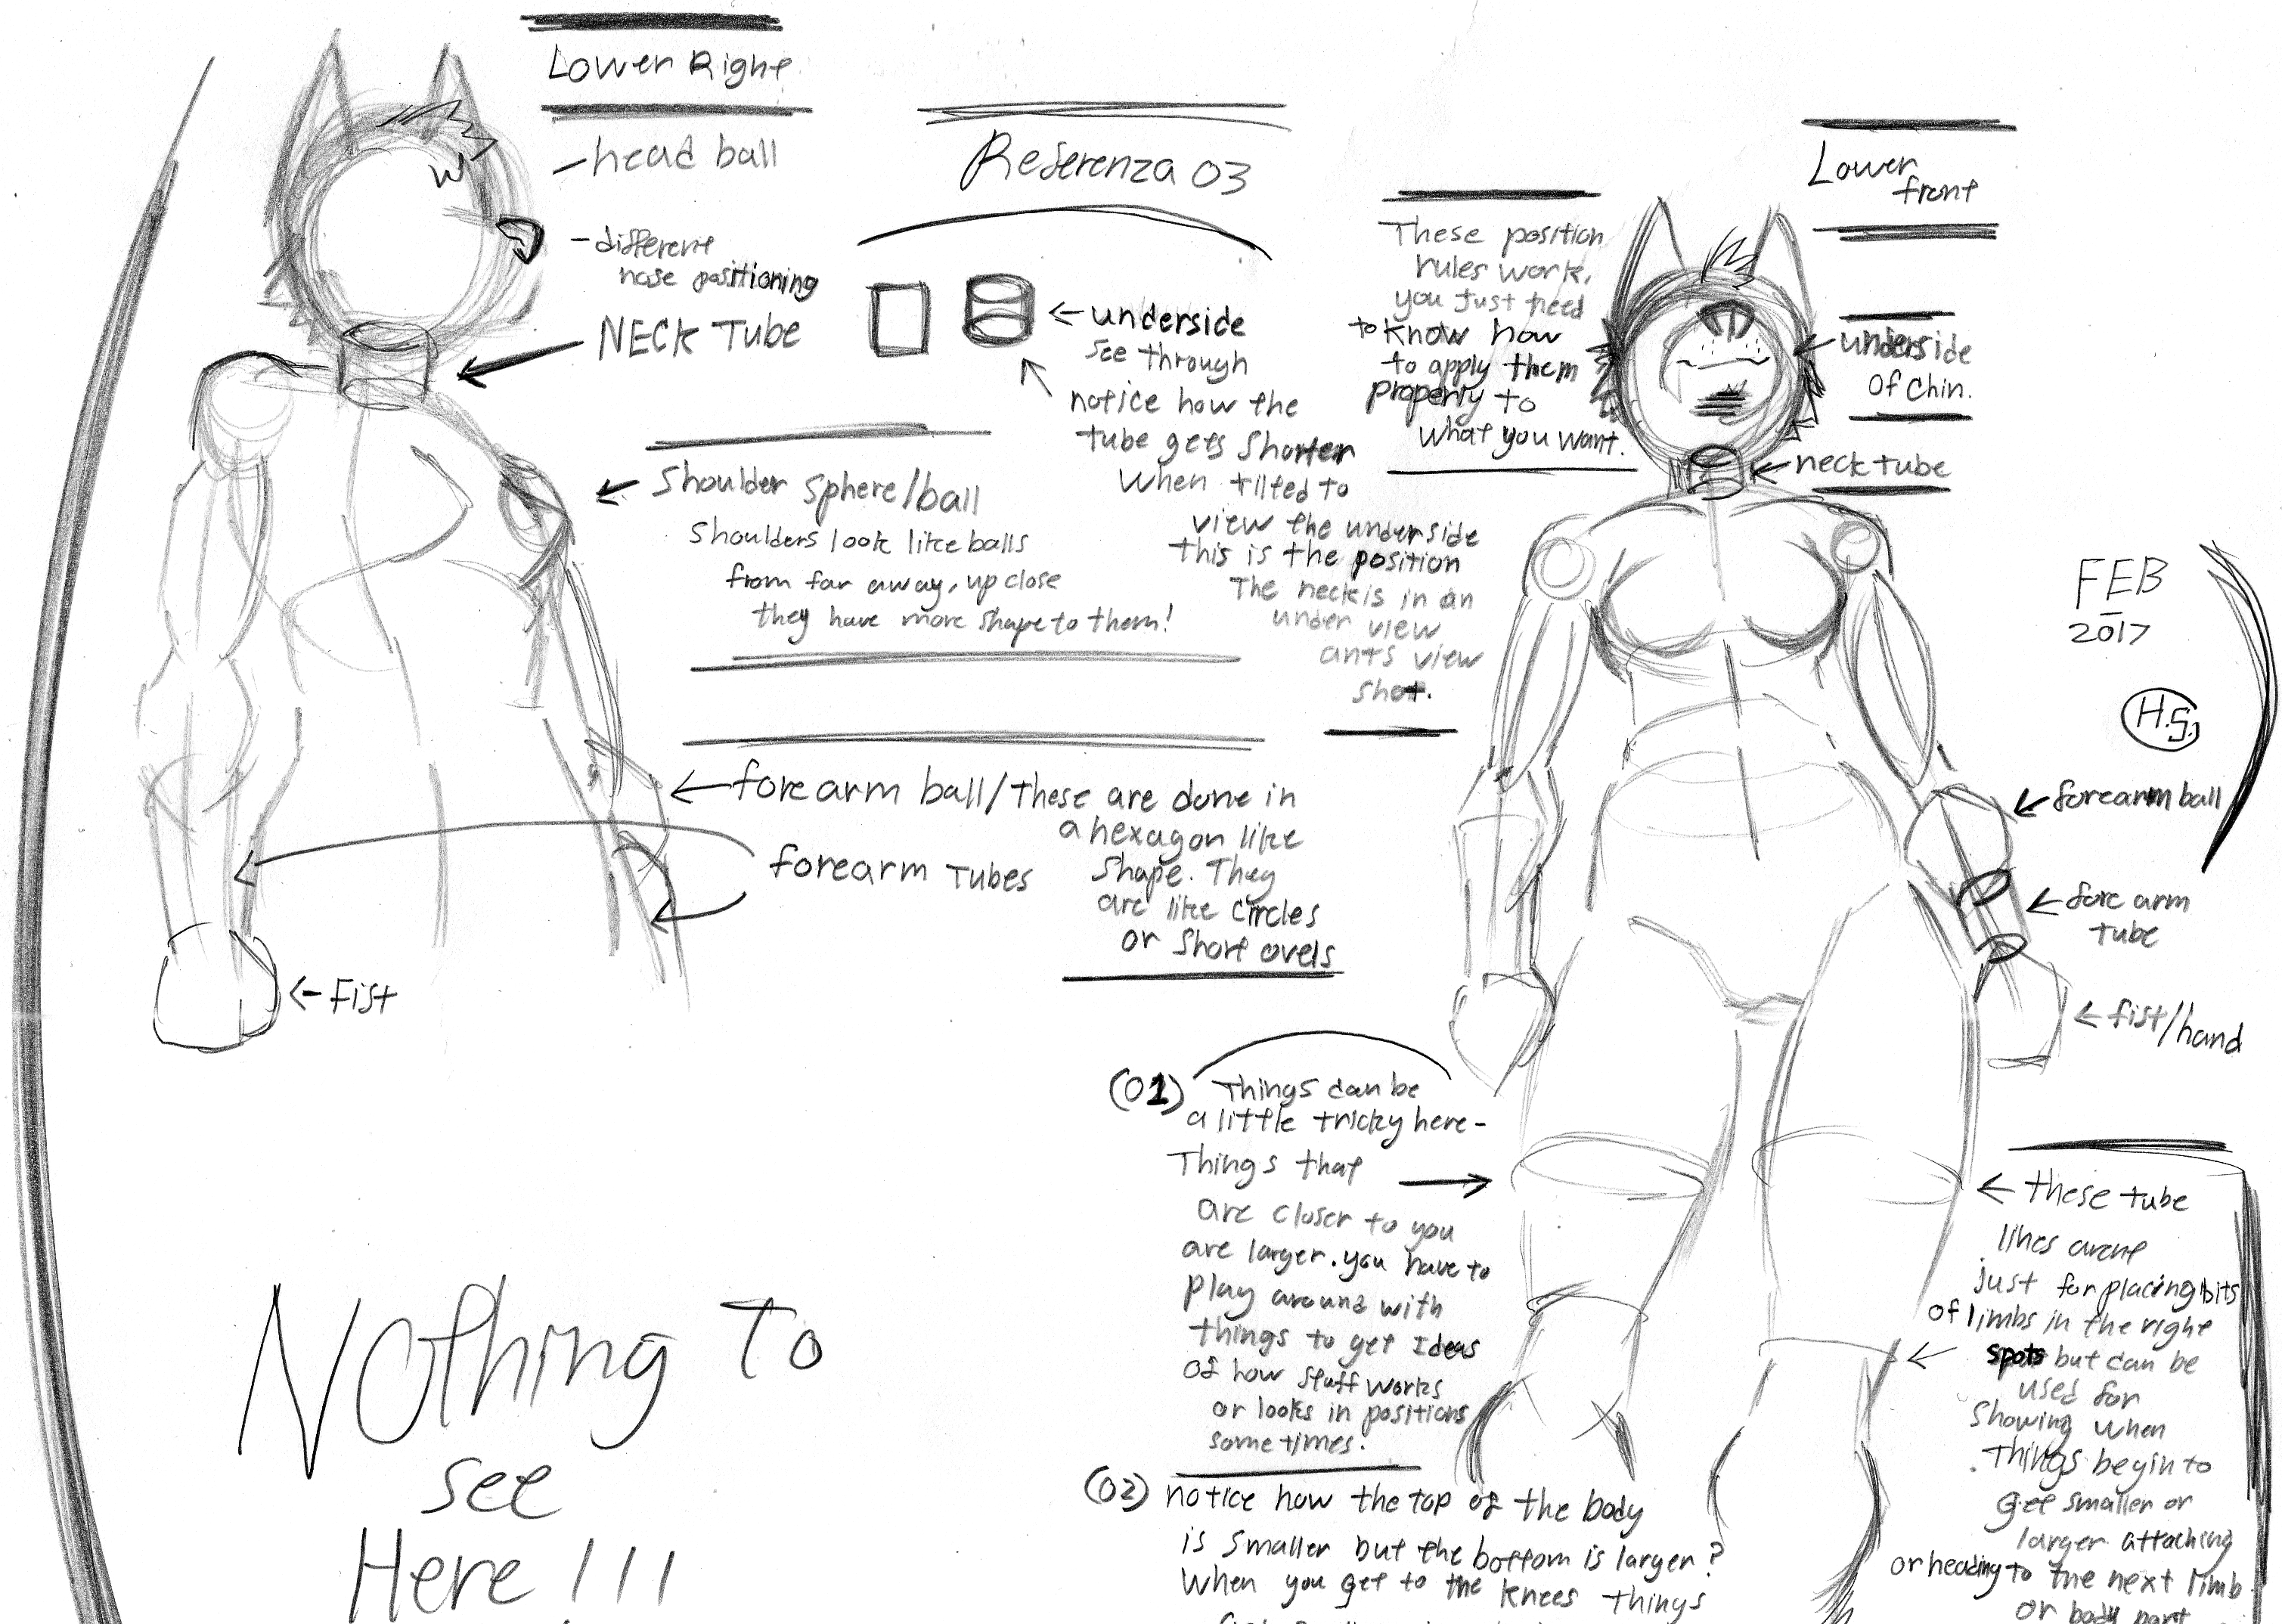 Lower Right
- head ball
- different
nose positioning
NECK Tube
Referenza 03
← underside
See through
notice how the
tube gets shorter
when tilted to
view the underside
this is the position
The neck is in an
under view
ants view
shot.
Shoulder sphere/ball
Shoulders look like balls
from far away, up close
they have more shape to them!
forearm ball/These are done in
a hexagon like
shape. They
are like circles
or short ovels
forearm Tubes
← Fist
Nothing To
see
Here!!!
These position
rules work,
you just need
to know how
to apply them
properly to
what you want.
Lower
front
underside
of chin.
neck tube
FEB
2017
H.S.
forearm ball
fore arm
tube
fist/hand
(01) Things can be
a little tricky here-
Things that
are closer to you
are larger. you have to
play around with
things to get Ideas
of how stuff works
or looks in positions
some times.
(02) notice how the top of the body
is smaller but the bottom is larger?
When you get to the knees things
these tube
lines arent
just for placing bits
of limbs in the right
spots but can be
used for
showing when
things begin to
get smaller or
larger attaching
or heading to the next limb
or body part